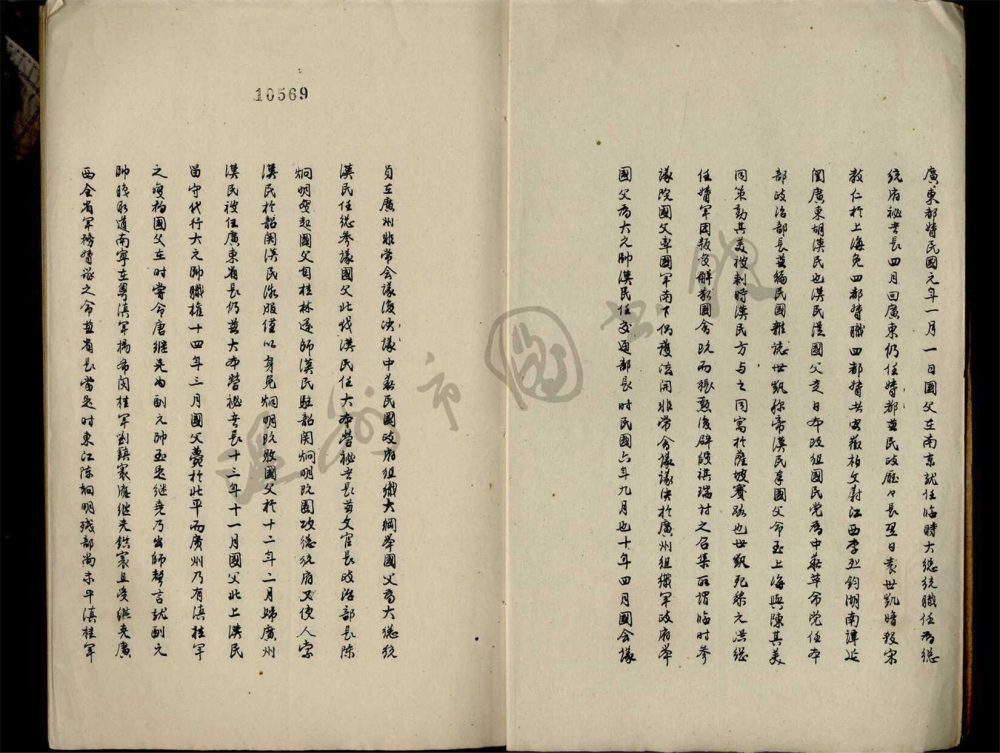 廣東都督民國元年一月一日國父在南京就任臨時大總統職任為總
統府祕書長四月回廣東仍任督都兼民政廳々長翌日袁世凱暗殺宋
教仁於上海免四都督職四都督者安徽柏文蔚江西李烈鈞湖南譚延
闓廣東胡漢民也漢民從國父走日本改組國民党為中華革命党任本
部政治部長兼編民國雜誌世凱称帝漢民奉國父命至上海與陳其美
同策動其美被刺時漢民方与之同寓於薩坡賽路也世凱死黎元洪繼
任督軍團叛變解散國會既而張勳復辟段祺瑞討之召集所謂臨时參
議院國父率國軍南下倡護法開非常會議議決於廣州組織軍政府舉
國父為大元帥漢民任交通部長时民國六年九月也十年四月國會議
10569
員在廣州非常會議復決議中華民國政府組織大綱舉國父為大總統
漢民任總參議國父北伐漢民任大本營祕書長兼文官長政治部長陳
炯明變起國父自桂林还師漢民駐韶関炯明既圍攻總統府又使人索
漢民於韶関漢民微服僅以身免炯明既敗國父於十二年二月歸廣州
漢民被任廣東省長仍兼大本營祕書長十三年十一月國父北上漢民
留守代行大元帥職權十四年三月國父薨於北平而廣州乃有滇桂軍
之變初國父在时嘗命唐继尧为副元帥至是继尧乃出師聲言就副元
帥職取道南寧在粵滇軍楊希閔桂軍劉鎮寰應继尧鎮寰且受继尧廣
西全省軍務督辦之命兼省長當是时東江陳炯明殘部尚未平滇桂軍